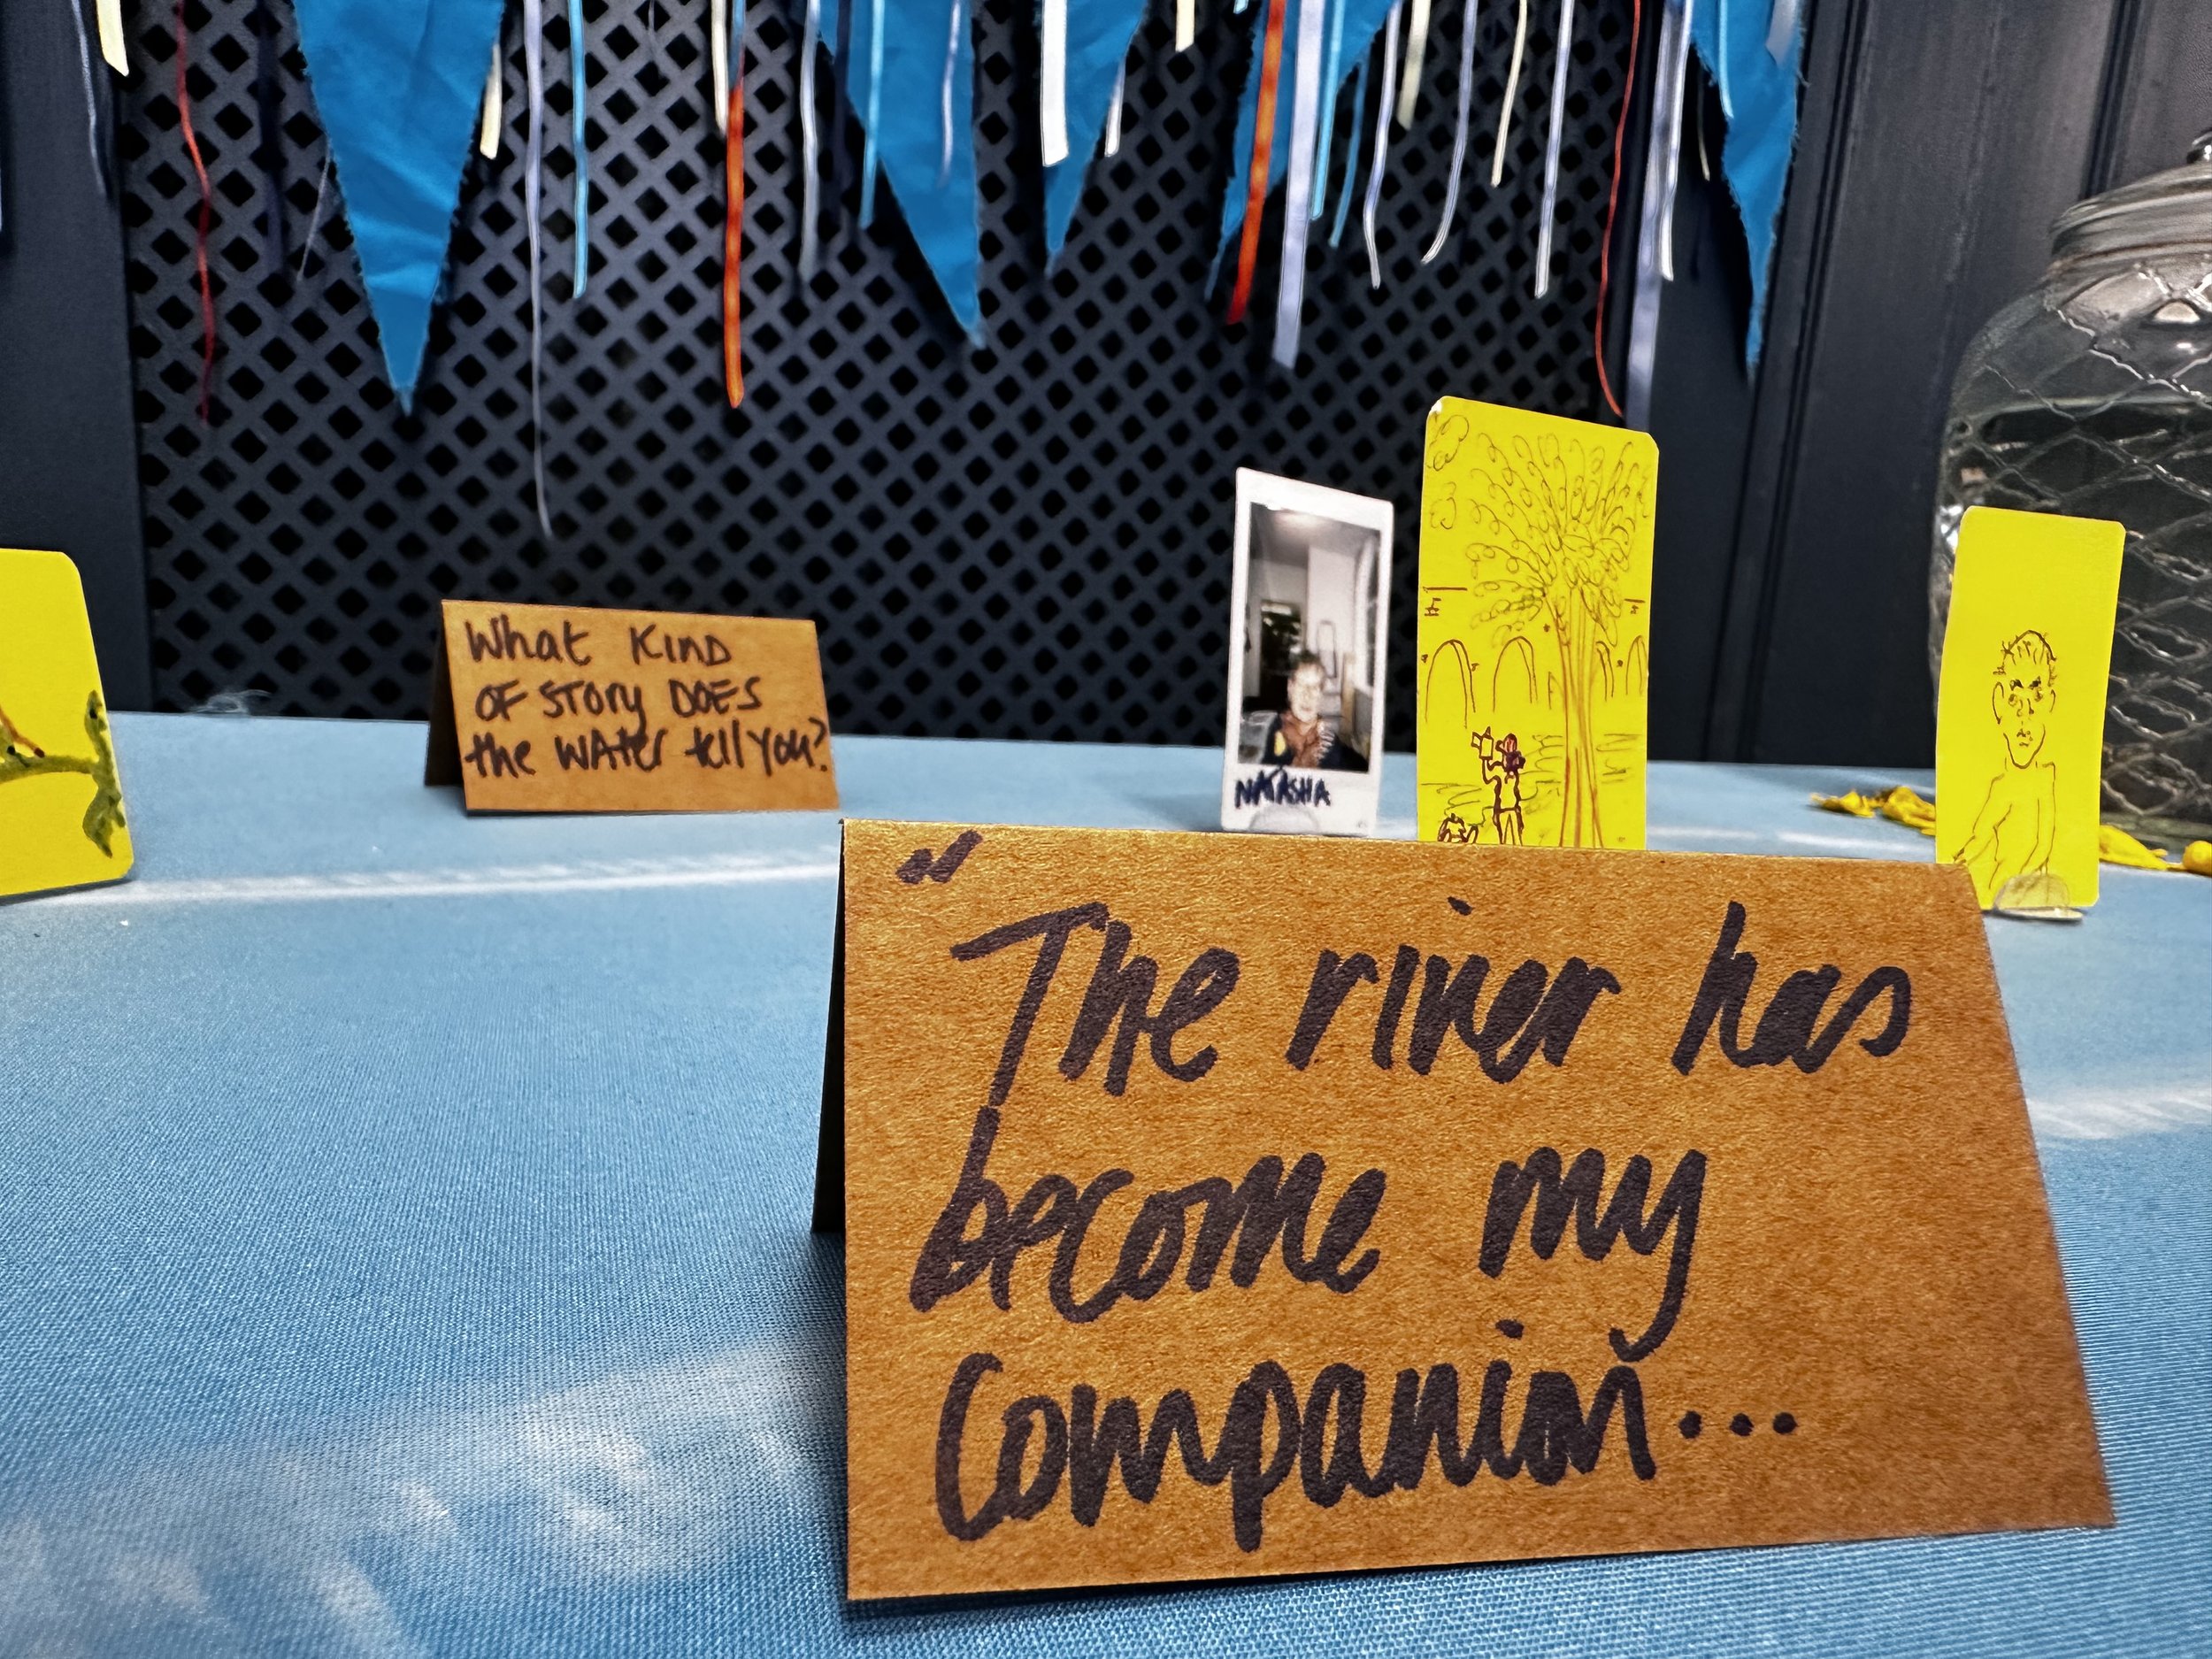 What KIND
OF STORY DOES
the WATER tell you?
NATASHA
"The river has
become my
Companion...